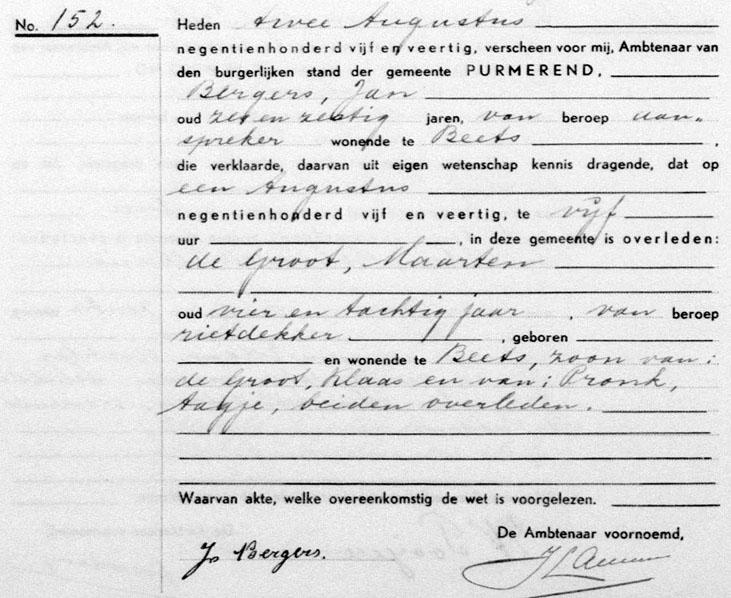 No. 152.
Heden twee Augustus
negentienhonderd vijf en veertig, verscheen voor mij, Ambtenaar van
den burgerlijken stand der gemeente PURMEREND,
Bergers, Jan
oud zes en zestig jaren, van beroep aan-
spreker wonende te Beets,
die verklaarde, daarvan uit eigen wetenschap kennis dragende, dat op
een Augustus
negentienhonderd vijf en veertig, te vijf
uur, in deze gemeente is overleden:
de Groot, Maarten
oud vier en tachtig jaar, van beroep
rietdekker, geboren
en wonende te Beets, zoon van:
de Groot, Klaas en van: Pronk,
Aagje, beiden overleden.
Waarvan akte, welke overeenkomstig de wet is voorgelezen.
De Ambtenaar voornoemd,
J. Bergers.